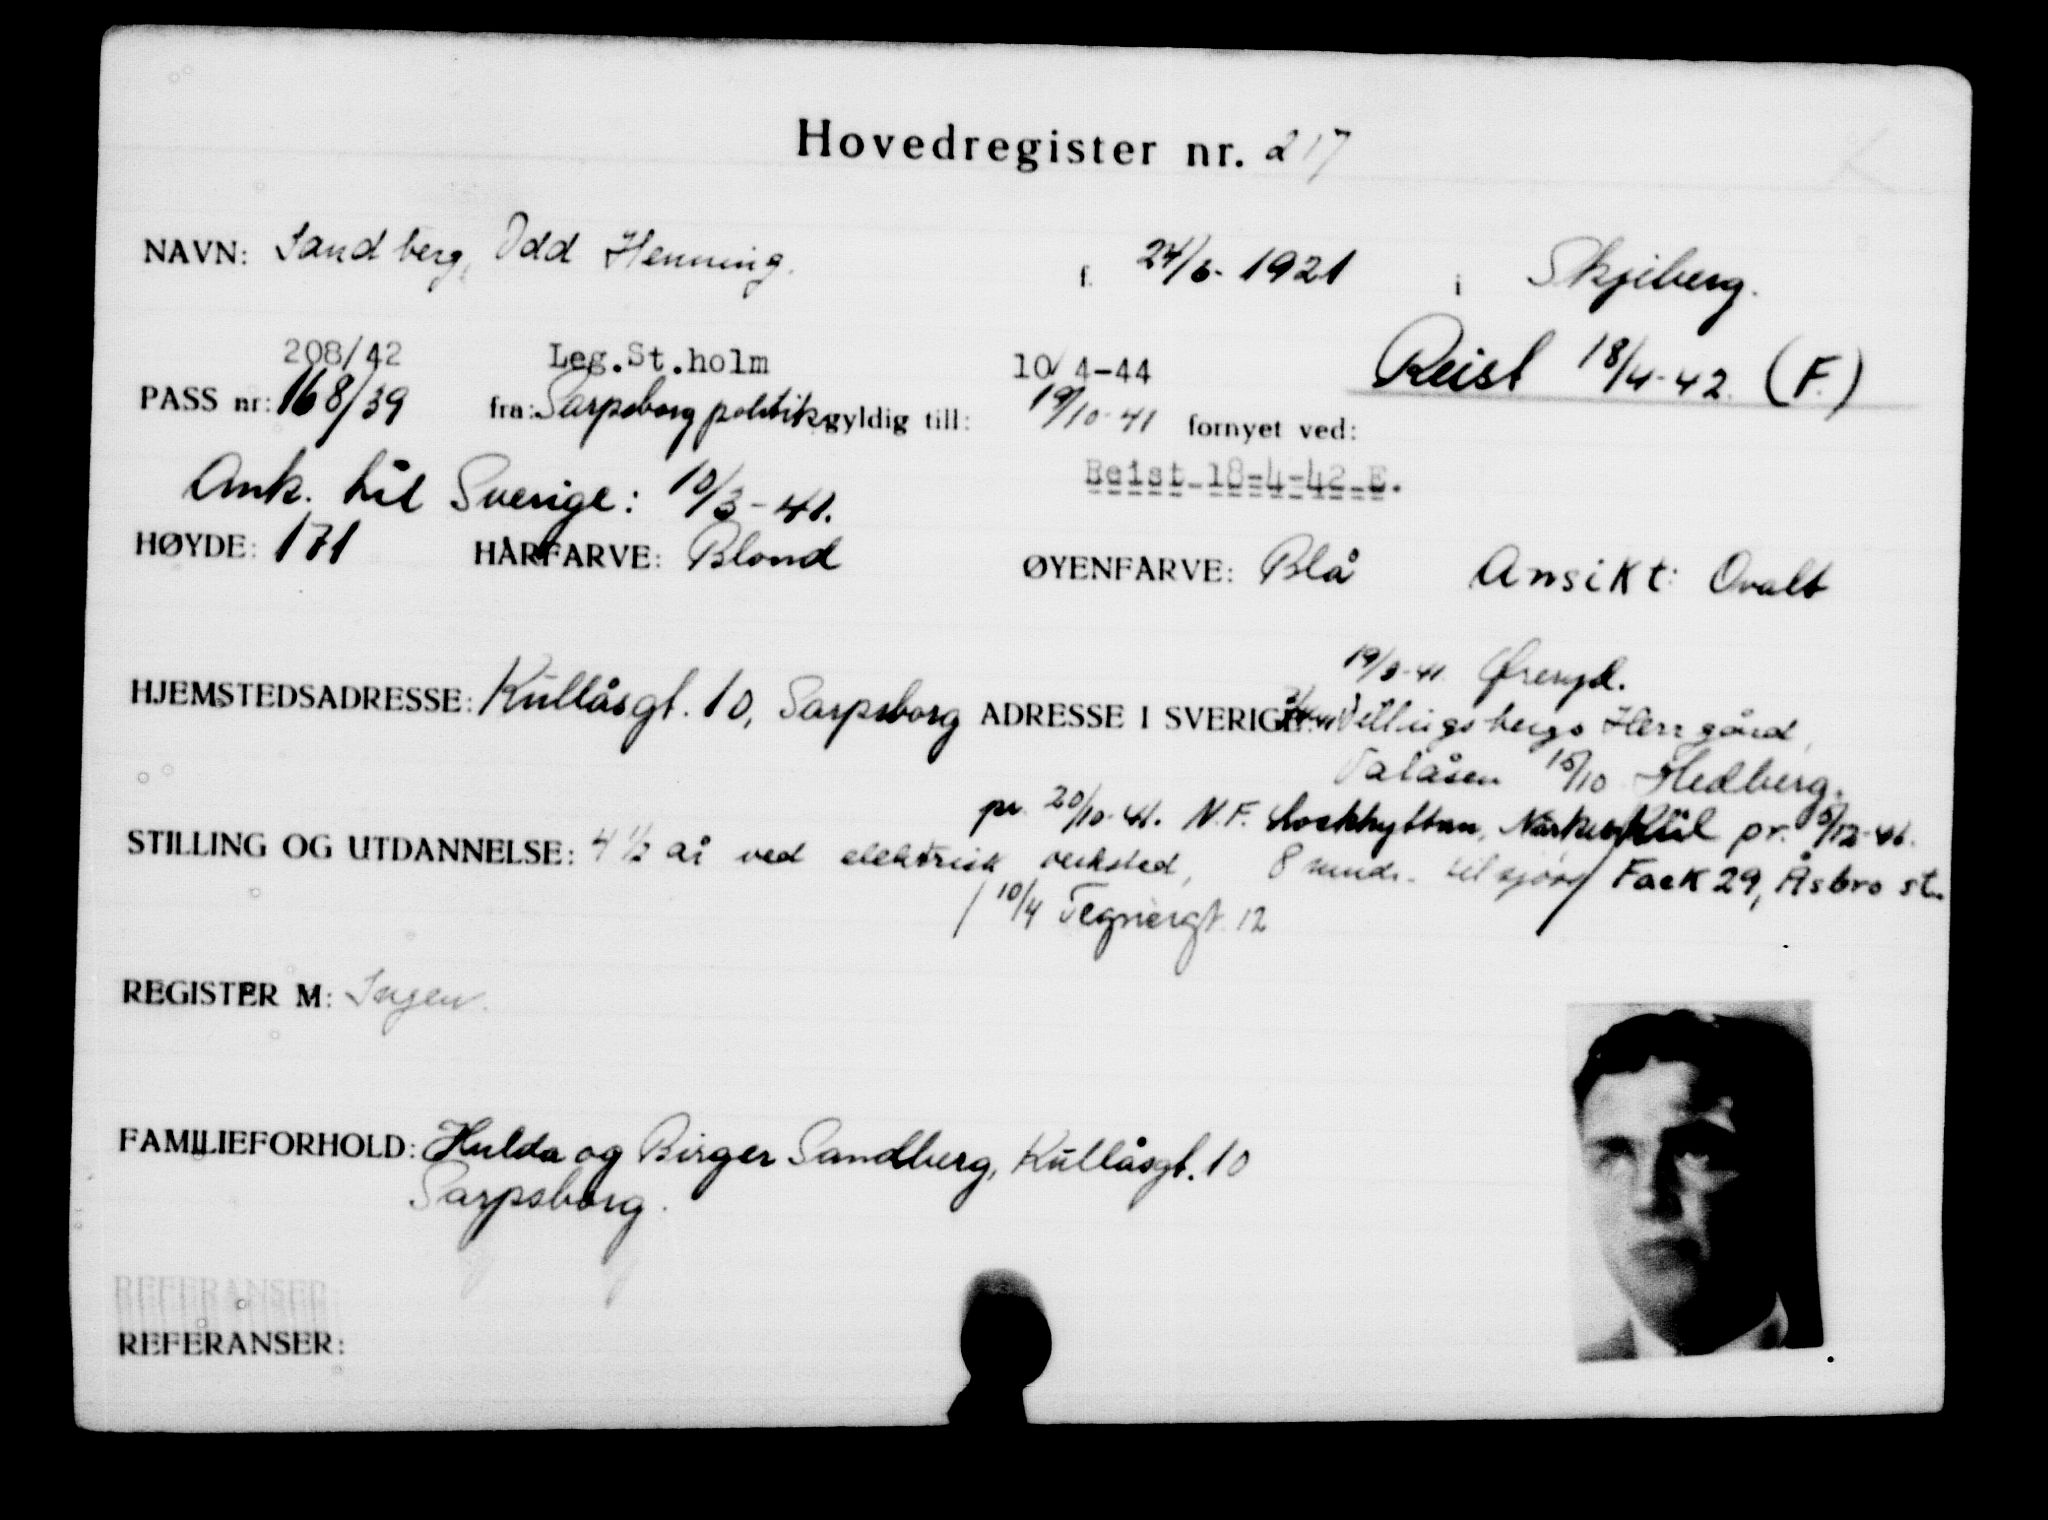 Hovedregister nr. 217
NAVN: Sandberg, Odd Henning. f. 24/6-1921 i Skjeberg.
208/42 Leg.St.holm 10/4-44 Reist 18/4-42 (F.)
PASS nr: 168/39 fra: Sarpsborg politik. gyldig till: 19/10-41 fornyet ved:
Reist 18-4-42 E.
Ank. til Sverige: 10/3-41.
HØYDE: 171 HÅRFARVE: Blond ØYENFARVE: Blå Ansikt: Ovalt
19/3-41 Øreryd.
HJEMSTEDSADRESSE: Kullåsgt. 10, Sarpsborg ADRESSE I SVERIGE: Vettingsbergs Herrgård,
Valåsen 15/10 Hedberg.
pr. 20/10-41. N.F. Lockhyttan, Närkes Kil pr. 5/12-41.
STILLING OG UTDANNELSE: 4 1/2 år ved elektrisk verksted, 8 mndr. til sjøss / Fack 29, Åsbro st.
/ 10/4 Tegnergt. 12
REGISTER M: Ingen.
FAMILIEFORHOLD: Hulda og Birger Sandberg, Kullåsgt. 10
Sarpsborg.
REFERANSER
REFERANSER: